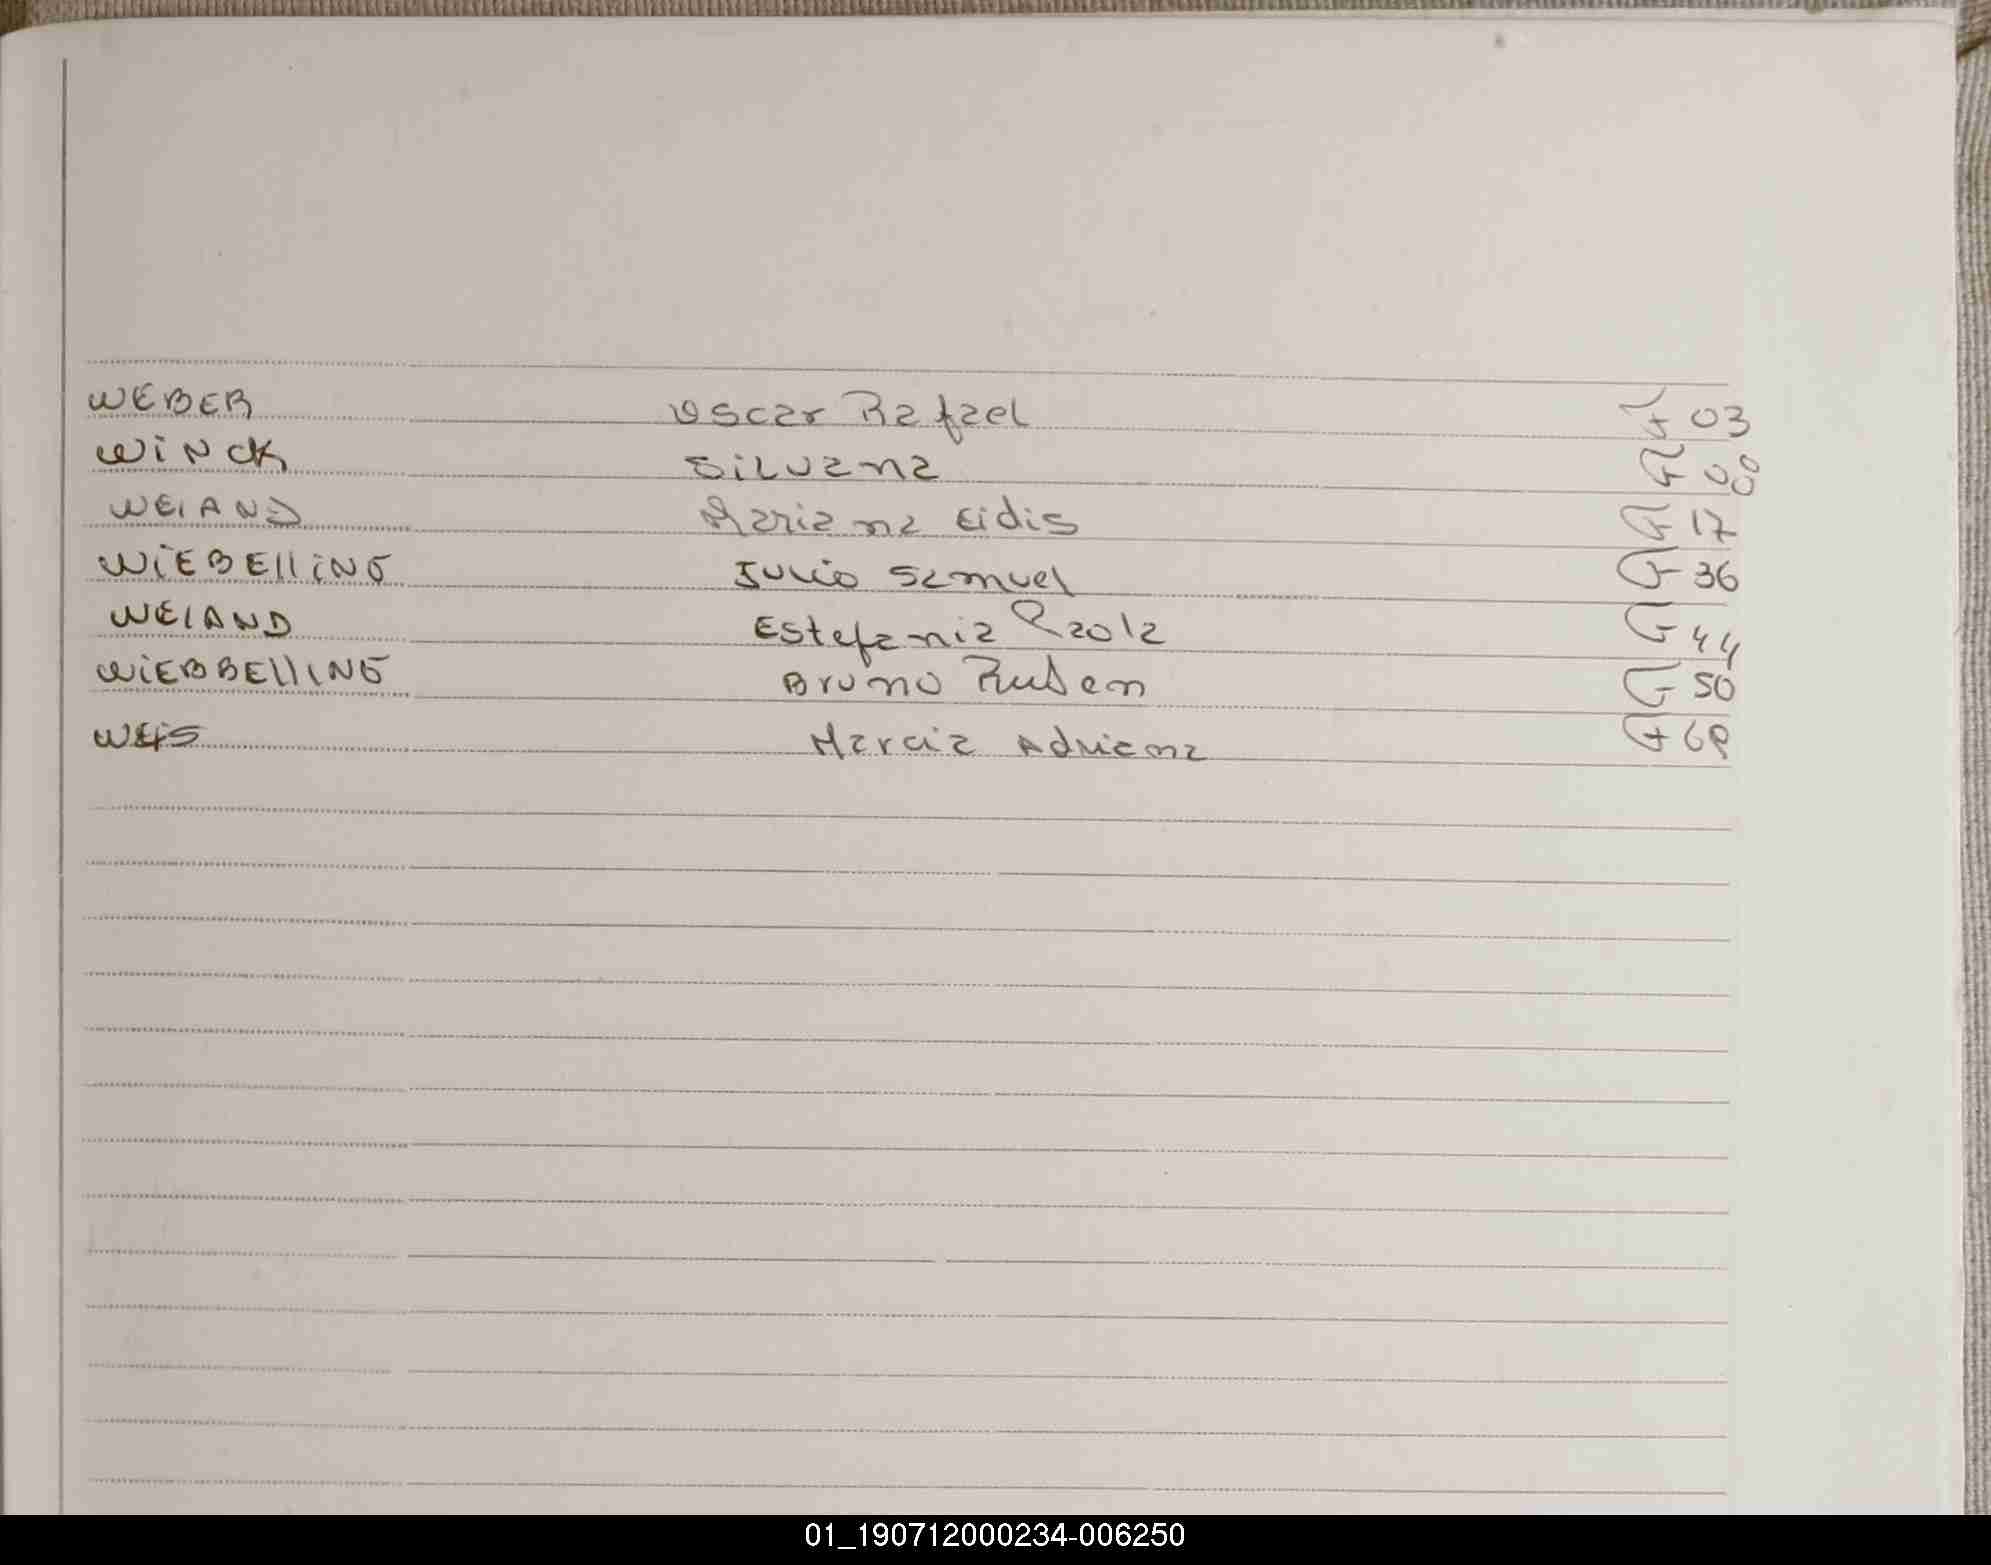 WEBER Oscar Rafael F 03
WINCK Silvana F 08
WEIAND Mariana Eidis F 17
WIEBELLING Julio Samuel F 36
WEIAND Estefania Paola F 44
WIEBBELLING Bruno Ruben F 50
WEIS Marcia Adriana F 68
01_190712000234-006250